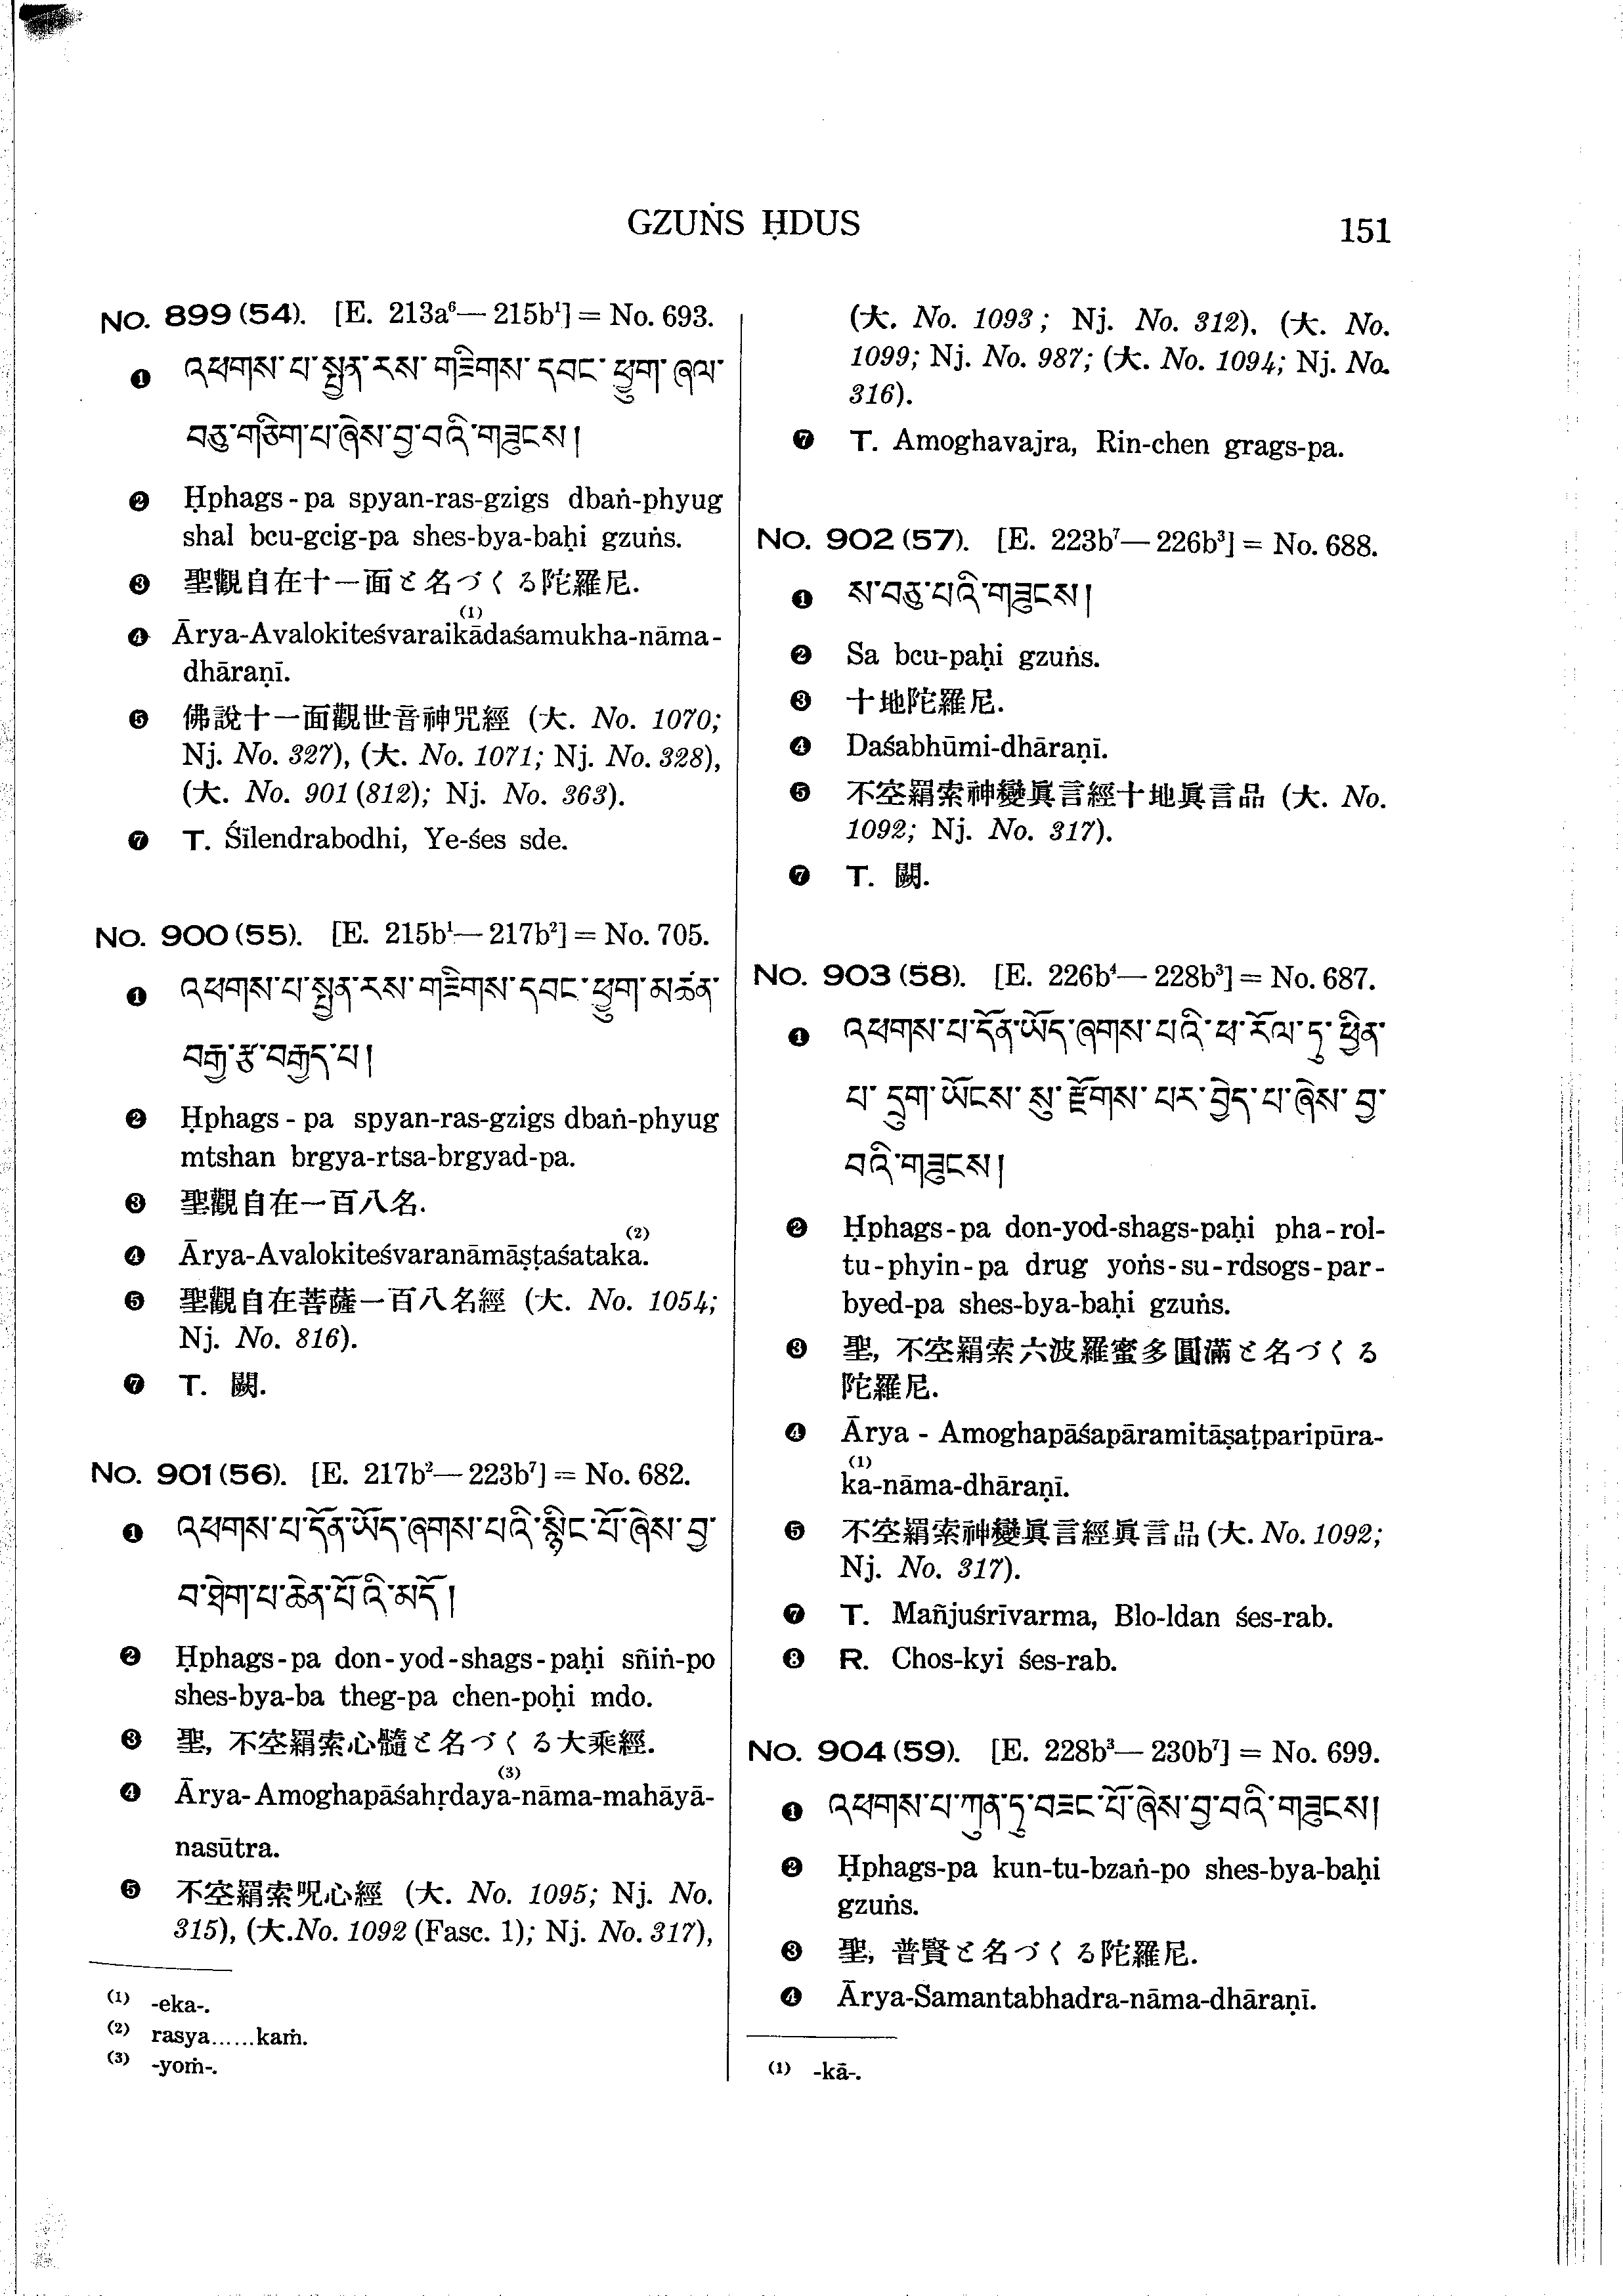 GZUṄS ḤDUS
151
No. 899 (54). [E. 213a⁶— 215b¹] = No. 693.
❶ འཕགས་པ་སྤྱན་རས་གཟིགས་དབང་ཕྱུག་ཞལ་
བཅུ་གཅིག་པ་ཞེས་བྱ་བའི་གཟུངས།
❷ Ḥphags-pa spyan-ras-gzigs dbaṅ-phyug
shal bcu-gcig-pa shes-bya-baḥi gzuṅs.
❸ 聖觀自在十一面と名づくる陀羅尼.
(1)
❹ Ārya-Avalokiteśvaraikādaśamukha-nāma-
dhāraṇī.
❺ 佛說十一面觀世音神咒經 (大. No. 1070;
Nj. No. 327), (大. No. 1071; Nj. No. 328),
(大. No. 901 (812); Nj. No. 363).
❼ T. Śīlendrabodhi, Ye-śes sde.
No. 900 (55). [E. 215b¹— 217b²] = No. 705.
❶ འཕགས་པ་སྤྱན་རས་གཟིགས་དབང་ཕྱུག་མཚན་
བརྒྱ་རྩ་བརྒྱད་པ།
❷ Ḥphags-pa spyan-ras-gzigs dbaṅ-phyug
mtshan brgya-rtsa-brgyad-pa.
❸ 聖觀自在一百八名.
(2)
❹ Ārya-Avalokiteśvaranāmāṣṭaśataka.
❺ 聖觀自在菩薩一百八名經 (大. No. 1054;
Nj. No. 816).
❼ T. 闕.
No. 901 (56). [E. 217b²— 223b⁷] = No. 682.
❶ འཕགས་པ་དོན་ཡོད་ཞགས་པའི་སྙིང་པོ་ཞེས་བྱ་
བ་ཐེག་པ་ཆེན་པོའི་མདོ།
❷ Ḥphags-pa don-yod-shags-paḥi sñiṅ-po
shes-bya-ba theg-pa chen-poḥi mdo.
❸ 聖, 不空羂索心髓と名づくる大乘經.
(3)
❹ Ārya-Amoghapāśahṛdaya-nāma-mahāyā-
nasūtra.
❺ 不空羂索呪心經 (大. No. 1095; Nj. No.
315), (大.No. 1092 (Fasc. 1); Nj. No. 317),
(1) -eka-.
(2) rasya......kaṁ.
(3) -yoṁ-.
(大. No. 1093; Nj. No. 312). (大. No.
1099; Nj. No. 987; (大. No. 1094; Nj. No.
316).
❼ T. Amoghavajra, Rin-chen grags-pa.
No. 902 (57). [E. 223b⁷— 226b³] = No. 688.
❶ ས་བཅུ་པའི་གཟུངས།
❷ Sa bcu-paḥi gzuṅs.
❸ 十地陀羅尼.
❹ Daśabhūmi-dhāraṇī.
❺ 不空羂索神變眞言經十地眞言品 (大. No.
1092; Nj. No. 317).
❼ T. 闕.
No. 903 (58). [E. 226b⁴— 228b³] = No. 687.
❶ འཕགས་པ་དོན་ཡོད་ཞགས་པའི་ཕ་རོལ་ཏུ་ཕྱིན་
པ་དྲུག་ཡོངས་སུ་རྫོགས་པར་བྱེད་པ་ཞེས་བྱ་
བའི་གཟུངས།
❷ Ḥphags-pa don-yod-shags-paḥi pha-rol-
tu-phyin-pa drug yoṅs-su-rdsogs-par-
byed-pa shes-bya-baḥi gzuṅs.
❸ 聖, 不空羂索六波羅蜜多圓滿と名づくる
陀羅尼.
❹ Ārya - Amoghapāśapāramitāṣaṭparipūra-
(1)
ka-nāma-dhāraṇī.
❺ 不空羂索神變眞言經眞言品 (大. No. 1092;
Nj. No. 317).
❼ T. Mañjuśrīvarma, Blo-ldan śes-rab.
❽ R. Chos-kyi śes-rab.
No. 904 (59). [E. 228b³— 230b⁷] = No. 699.
❶ འཕགས་པ་ཀུན་ཏུ་བཟང་པོ་ཞེས་བྱ་བའི་གཟུངས།
❷ Ḥphags-pa kun-tu-bzaṅ-po shes-bya-baḥi
gzuṅs.
❸ 聖, 普賢と名づくる陀羅尼.
❹ Ārya-Samantabhadra-nāma-dhāraṇī.
(1) -kā-.